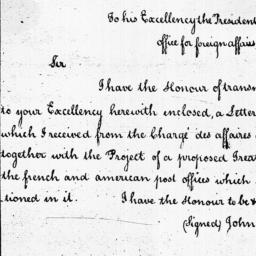 To his Excellency the President
Office for foreign affairs
Sir
I have the Honour of transm
to your Excellency herewith enclosed, a Letter
which I received from the Chargé des affaires
together with the Project of a proposed Trea
the french and american post offices which
tioned in it. I have the Honour to be &
(Signed) John